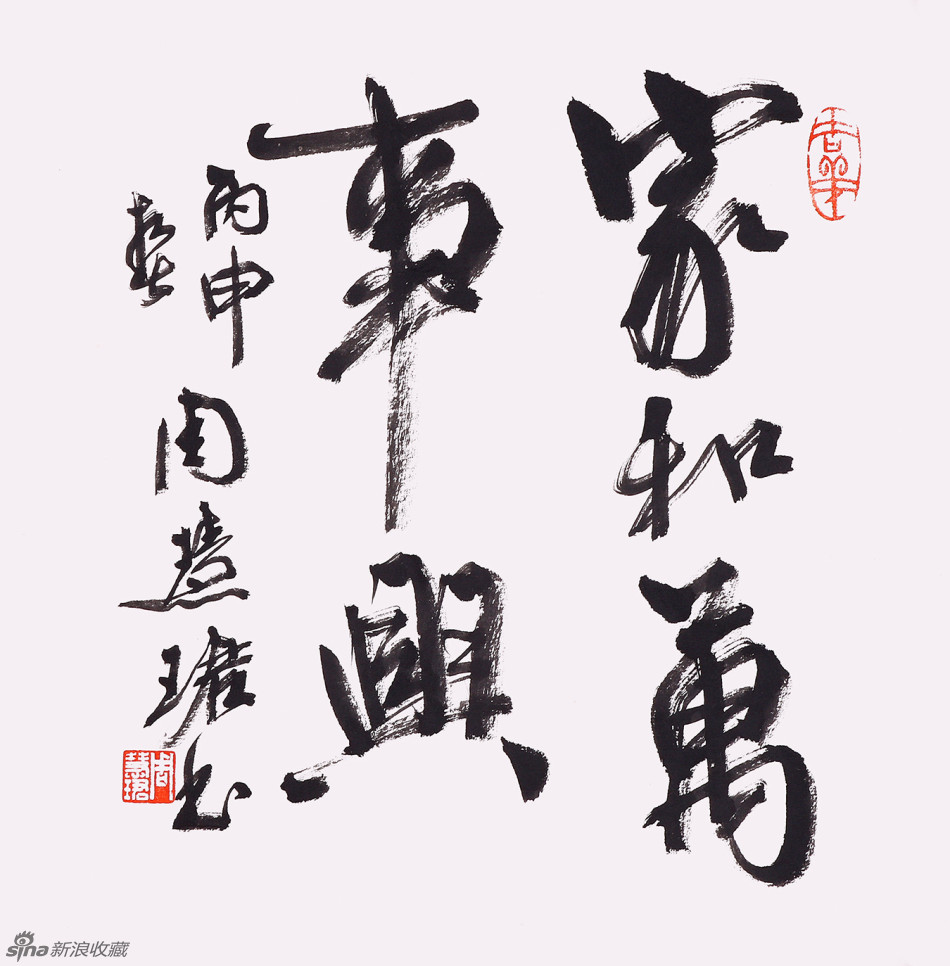 家和萬
事興
丙申
春
周慧珺书
周慧珺
sina新浪收藏